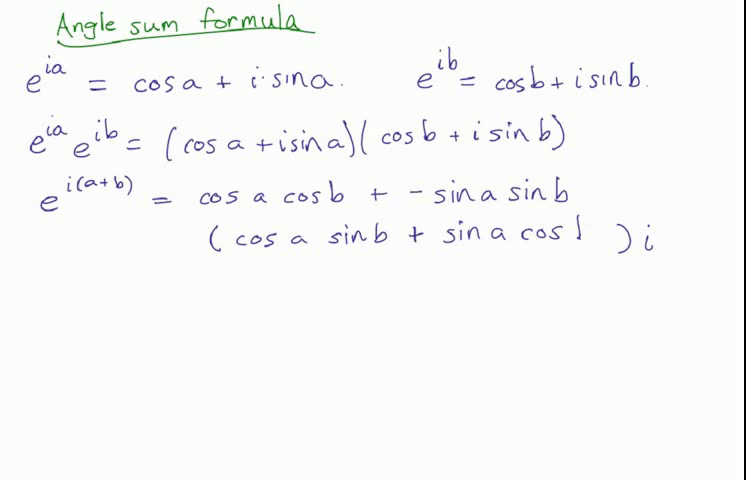 Angle sum formula
e^{ia} = cos a + i·sin a. e^{ib} = cos b + i sin b.
e^{ia} e^{ib} = (cos a + i sin a)(cos b + i sin b)
e^{i(a+b)} = cos a cos b + - sin a sin b
(cos a sin b + sin a cos )i